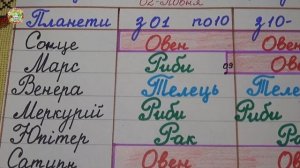 02-Повня
Планети з 01 по 10 з 10-
Сонце Овен Овен
Марс Риби 09 Ов
Венера Телець Телец
Меркурій Риби Риб
Юпітер Рак Рак
Сатурн Овен Овен